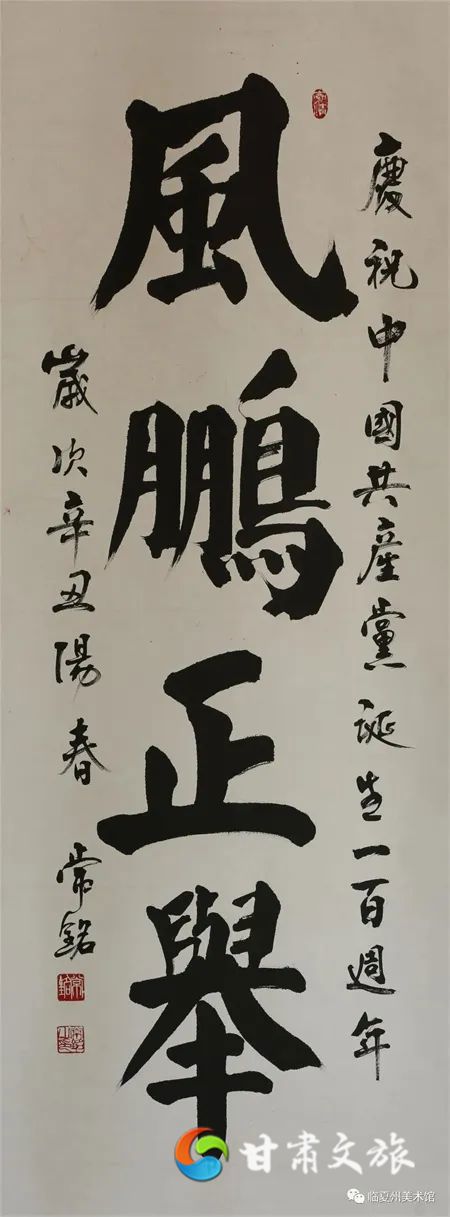 慶祝中國共產黨誕生一百週年
風鵬正舉
歲次辛丑陽春 常銘
甘肃文旅
临夏州美术馆